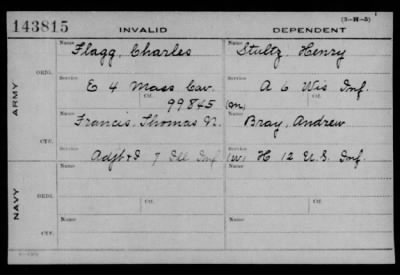 143815 INVALID DEPENDENT (3-H-3)
Name Name
Flagg, Charles Stultz, Henry
ORIG. Service Service
E 4 Mass Cav. A 6 Wis Inf.
ARMY Ctf. Ctf.
99845 (M)
Name Name
Francis, Thomas N. Bray, Andrew
CTF. Service Service
Adjt & D 7 Ill Inf (W) H 12 U.S. Inf.
Name Name
ORIG.
Service Service
NAVY
Name Name
CTF.
Service Service